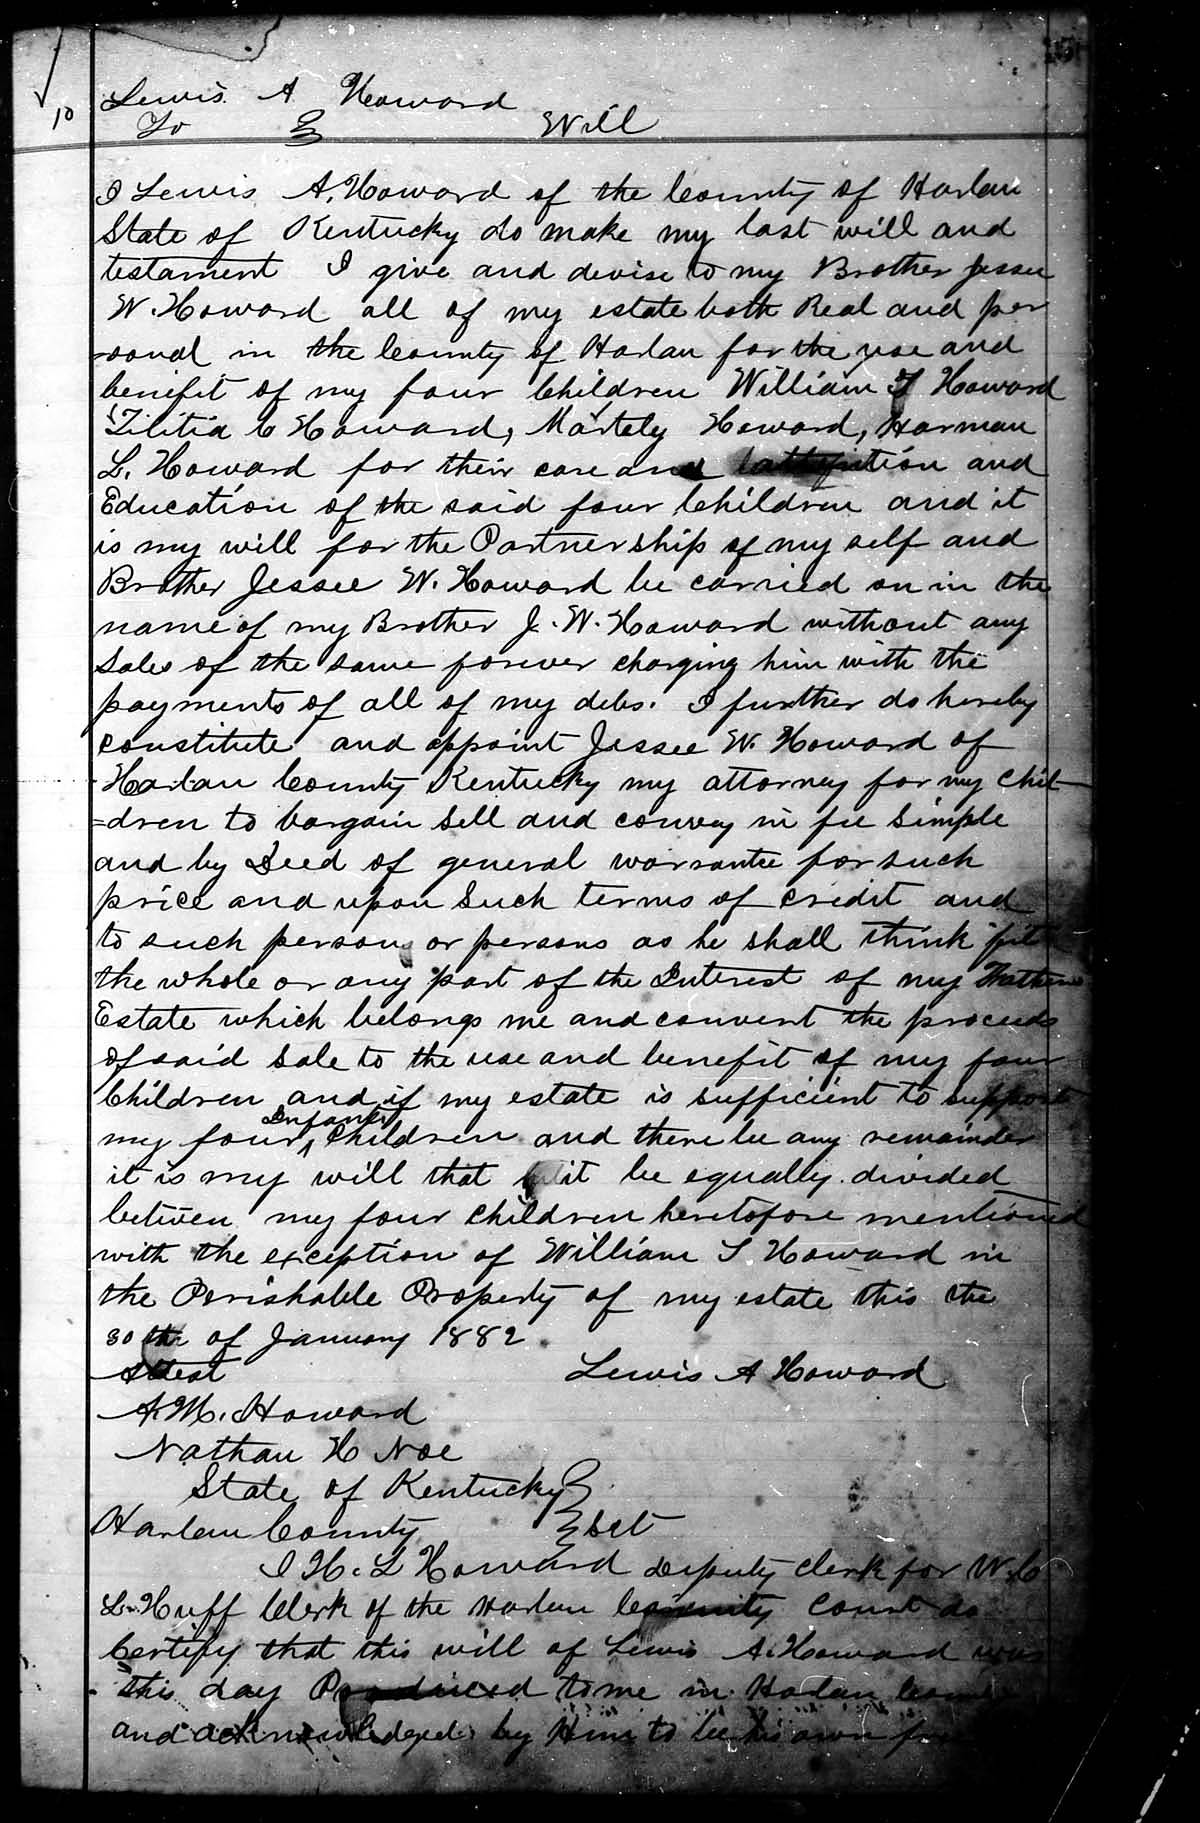 10
Lewis A Howard
To } Will
I Lewis A. Howard of the County of Harlan
State of Kentucky do make my last will and
testament I give and devise to my Brother Jessee
W. Howard all of my estate both Real and per
-sonal in the County of Harlan for the use and
benifit of my four Children William T Howard
Howard, Howard, Harman
L. Howard for their care and and
Education of the said four Children and it
is my will for the Partnership of my self and
Brother Jessee W. Howard be carried on in the
name of my Brother J. W. Howard without any
Sales of the same forever charging him with the
payments of all of my debs. I further do hereby
constitute and appoint Jessee W. Howard of
Harlan County Kentucky my attorney for my Chil-
=dren to bargain Sell and convey in fee Simple
and by Deed of general warrantee for such
price and upon Such terms of credit and
to such person or persons as he shall think fit
the whole or any part of the Interest of my Fathers
Estate which belongs me and convert the proceeds
of said Sale to the use and benefit of my four
Children and if my estate is sufficient to support
my four Infant Children and there be any remainder
it is my will that it be equally divided
between my four Children heretofore mentioned
with the exception of William T Howard in
the Perishable Property of my estate this the
30 th of January 1882
Attest Lewis A Howard
A. M. Howard
Nathan H Noe
State of Kentucky }
Harlan County } Sct
I H. L Howard deputy clerk for W.
L. Huff Clerk of the Harlan County Court do
Certify that this will of Lewis A. Howard was
this day Produced to me in Harlan County
and acknowledged by Him to be his own